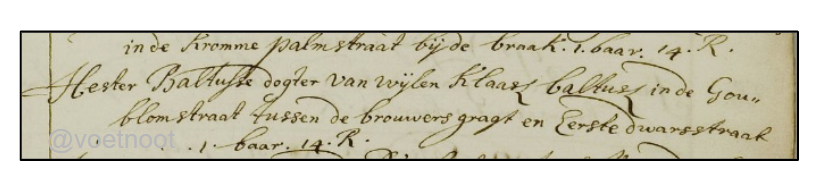 in de Kromme palmstraat bij de braak. 1. baar. 14. R.
Hester Baltusse dogter van wijlen Klaas baltus in de Gou„
blomstraat tussen de brouwersgragt en Eerste dwarsstraat
@voetnoot . 1. baar. 14. R.